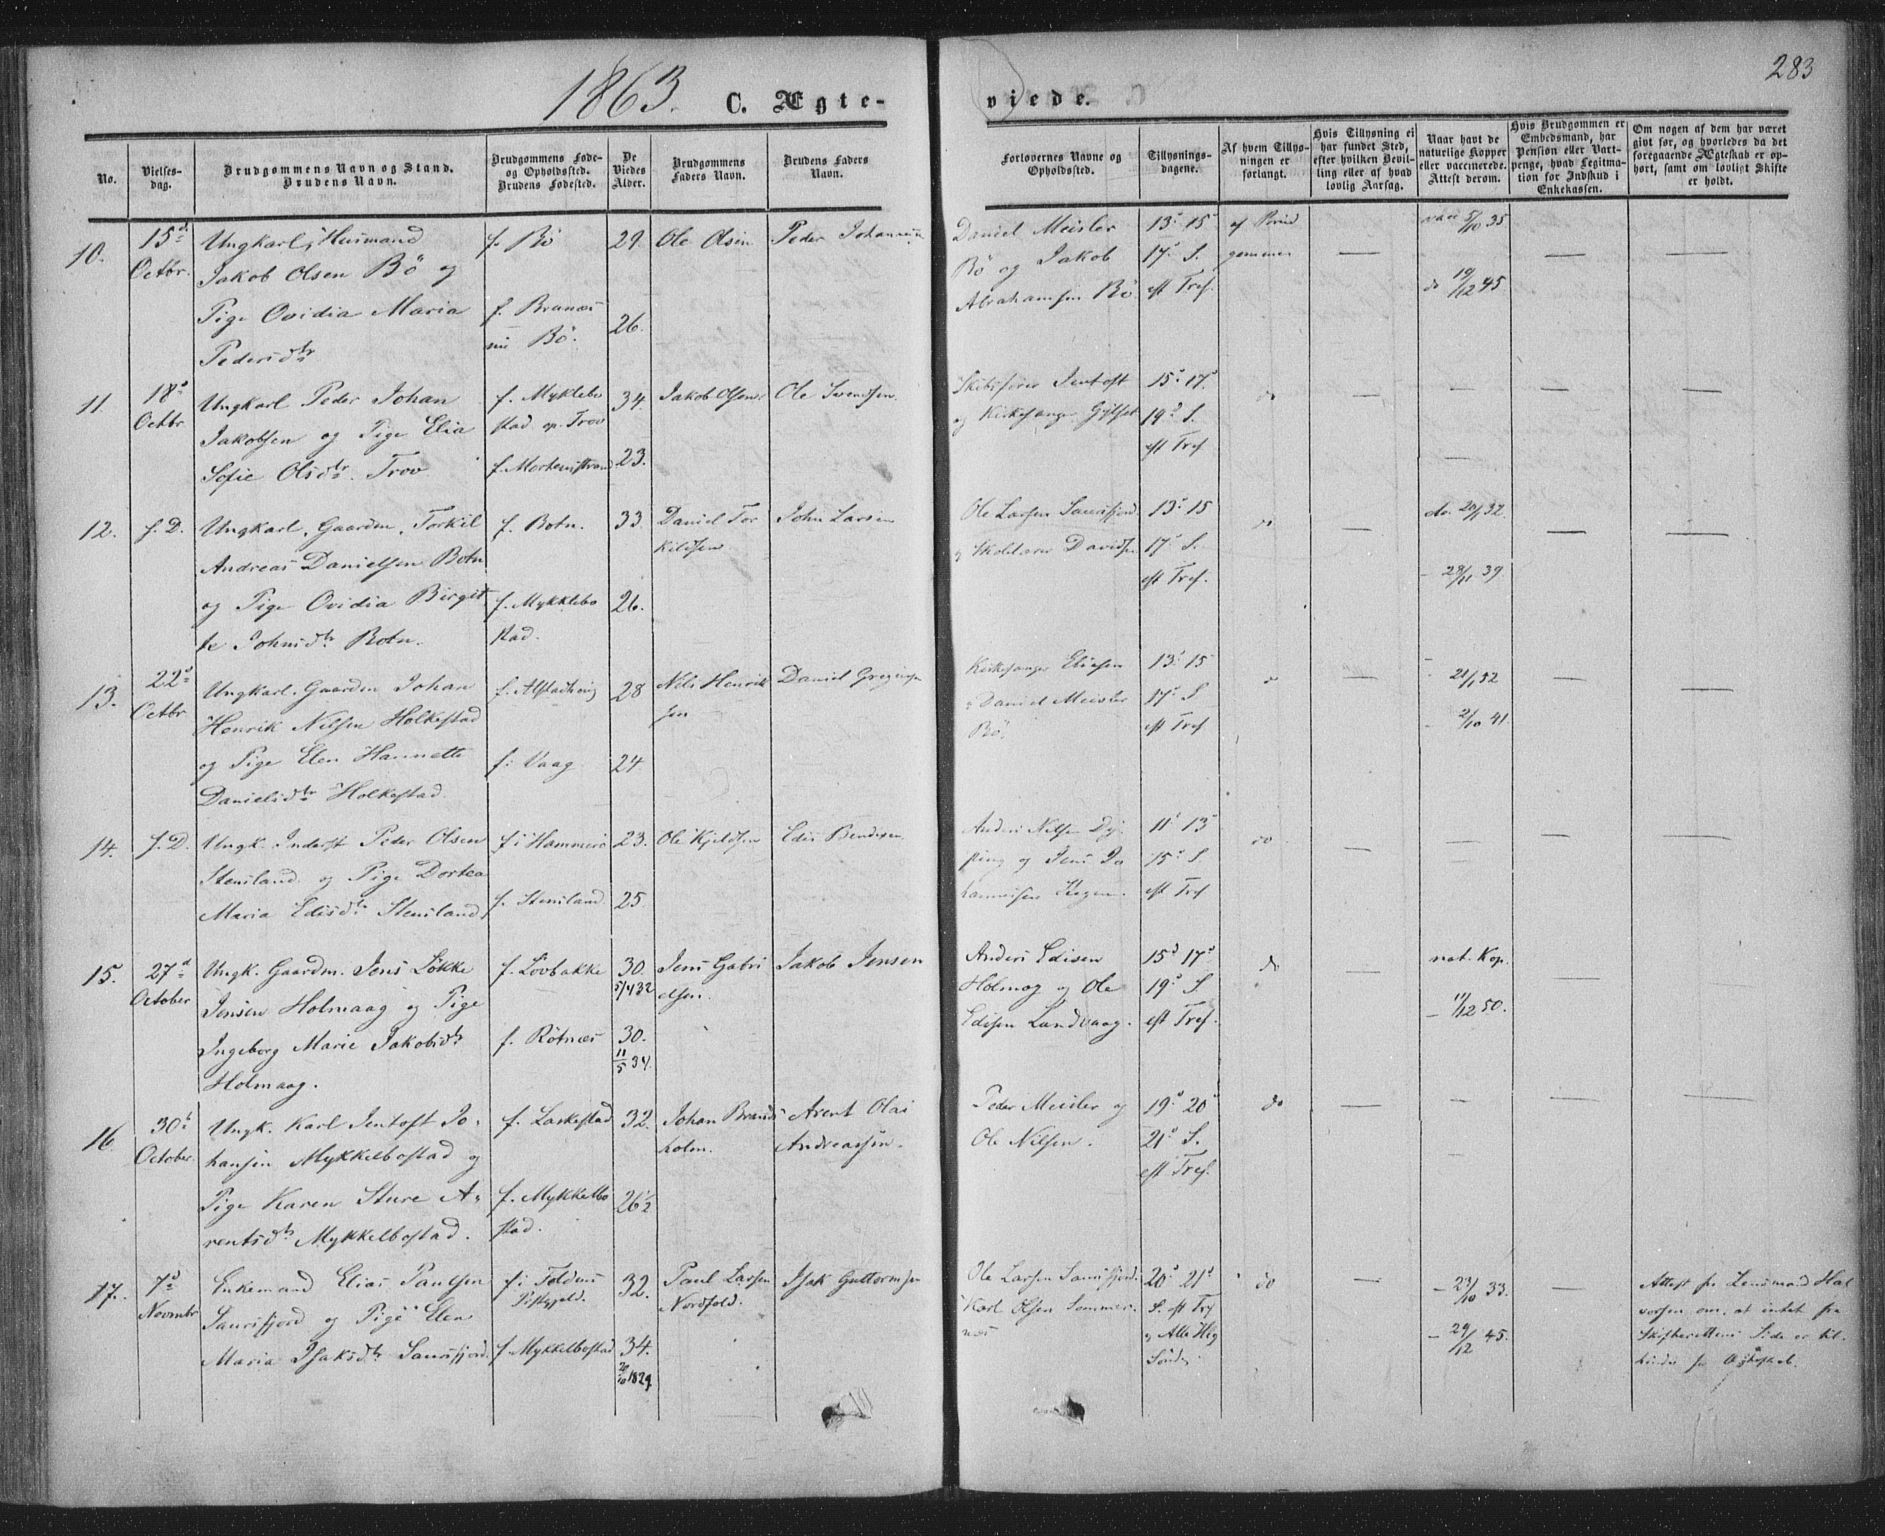 1863.
C. Ægte-
viede.
283
No.
Vielses-
dag.
Brudgommens Navn og Stand.
Brudens Navn.
Brudgommens Føde-
og Opholdssted.
Brudens Fødested.
De
Viedes
Alder.
Brudgommens
Faders Navn.
Brudens Faders
Navn.
Forlovernes Navne og
Opholdssted.
Tillysnings-
dagene.
Af hvem Tillys-
ningen er
forlangt.
Hvis Tillysning ei
har fundet Sted,
efter hvilken Bevil-
ling eller af hvad
lovlig Aarsag.
Naar havt de
naturlige Kopper
eller vaccinerede.
Attest derom.
Hvis Brudgommen er
Embedsmand, har
Pension eller Vart-
penge, hvad Legitma-
tion for Indskud i
Enkekassen.
Om nogen af dem har været
givt før, og hvorledes da det
foregaaende Ægteskab er op-
hørt, samt om lovligt Skifte
er holdt.
10.
15d
Octbr.
Ungkarl, Huusmand
Jakob Olsen Bö og
Pige Ovidia Maria
Pedersdtr
f. Bö
f. Brunæs
Bö.
29.
26.
Ole Olsen
Peder Johannesen
Daniel Meisler
Bö og Jakob
Abrahamsen Bö
13d 15d
17d S.
eft Tref.
af Brud
gommen
vacc 5/10 35
do 19/12 45.
11.
18d
Octbr
Ungkarl Peder Johan
Jakobsen og Pige Elia
Sofie Olsdtr. Trov
f. Myklebo
stad op. Trov
f. Mortensstrand
34.
23.
Jakob Olsen
Ole Svendsen.
Skibsfører Jentoft
og Kirkesanger Gylset
15d 17d
19d S.
eft Tref
do
12.
s. D.
Ungkarl, Gaardm. Torkil
Andreas Danielsen Botn
og Pige Ovidia Birgit
te Johnsdtr Botn.
f. Botn.
f. Myklebo
stad.
33.
26.
Daniel Tor
kildsen
John Larsen
Ole Larsen Saursfjord
og Skolelærer Davidsen
13d 15
17d S.
eft Tref.
do
do. 20/1 32.
- 28/11 39.
13.
22d
Octbr
Ungkarl, Gaardm Johan
Henrik Nilsen Holkestad
og Pige Elen Hannette
Danielsdtr Holkestad.
f. Alstadhoug
f. Vaag
28
24.
Nils Henrik
sen
Daniel Gregersen
Kirkesanger Eliesen
og Daniel Meisler
Bö.
13d 15
17d S
eft Tref
do
21/1 52
- 2/10 41.
14.
s. D.
Ungk. Inderst Peder Olsen
Stensland og Pige Dortea
Maria Edisdtr Stensland
f. i Hammerö
f. Stensland
23.
25.
Ole Kjeldsen
Edis Bendixen
Anders Nilsen Dy
ping og Jens Jo
hannesen Skogen.
11d 13
15d S.
eft Tref
do
15.
27d
October
Ungk. Gaardm. Jens Lökke
Jensen Holmaag og Pige
Ingeborg Marie Jakobsdtr
Holmaag.
f. Lövbakke
f. Rötnæs
30.
5/4 32
30.
11/5 34.
Jens Gabri
elsen.
Jakob Jensen
Anders Edisen
Holmog og Ole
Edisen Lundvaag.
15d 17d
19d S
eft Tref.
do
nat. Kop.
- 17/12 50.
16
30t
October.
Ungk. Karl Jentoft Jo-
hansen Mykkelbostad og
Pige Karen Sture A-
rentsdtr Mykkelbostad.
f. Laskestad
f. Mykkelbo
stad.
32.
26 1/2
Johan Brands
holm.
Arent Olai
Andreassen.
Peder Meisler og
Ole Nilsen.
19d 20d
21d S.
eft Tref.
do
17.
7d
Novmbr
Enkemand Elias Paulsen
Saursfjord og Pige Elen
Maria Isaksdtr Saursfjord.
f. i Foldens
Pstgjeld.
f. Mykkelbostad
32.
34.
20/10 1829
Paul Larsen
Nordfold.
Isak Guttormsen
Ole Larsen Saursfjord
Karl Olsen Sommer-
næs
20d 21d
S. eft Tref
og Alle Helg
Sönd.
do
- 23/10 33.
- 29/12 45.
Attest fr Lensmand Hal
vorsen om, at intet fra
Skifterettens Side er til
hinder for Ægteskab.